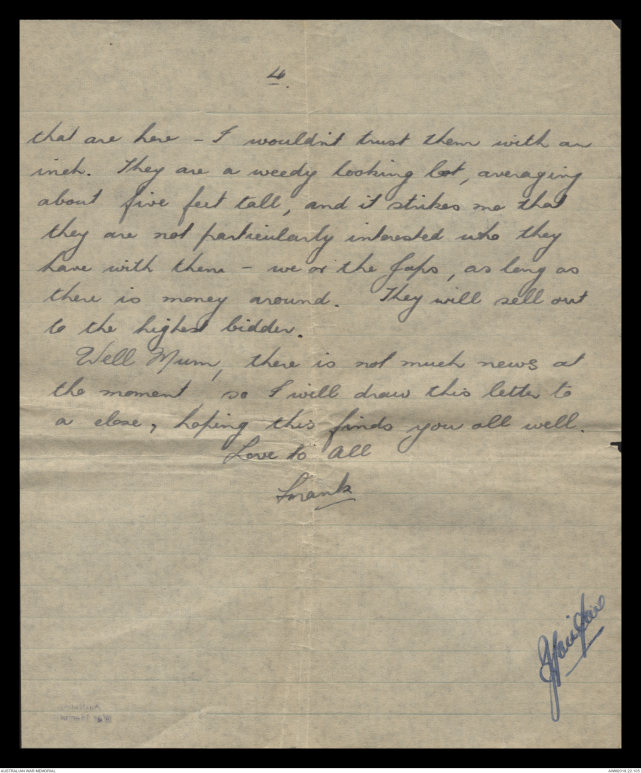 4.
that are here - I wouldn't trust them with an
inch. They are a weedy looking lot, averaging
about five feet tall, and it strikes me that
they are not particularly interested who they
have with them - we or the Japs, as long as
there is money around. They will sell out
to the highest bidder.
Well Mum, there is not much news at
the moment, so I will draw this letter to
a close, hoping this finds you all well.
Love to All
Frank
AUSTRALIAN WAR MEMORIAL